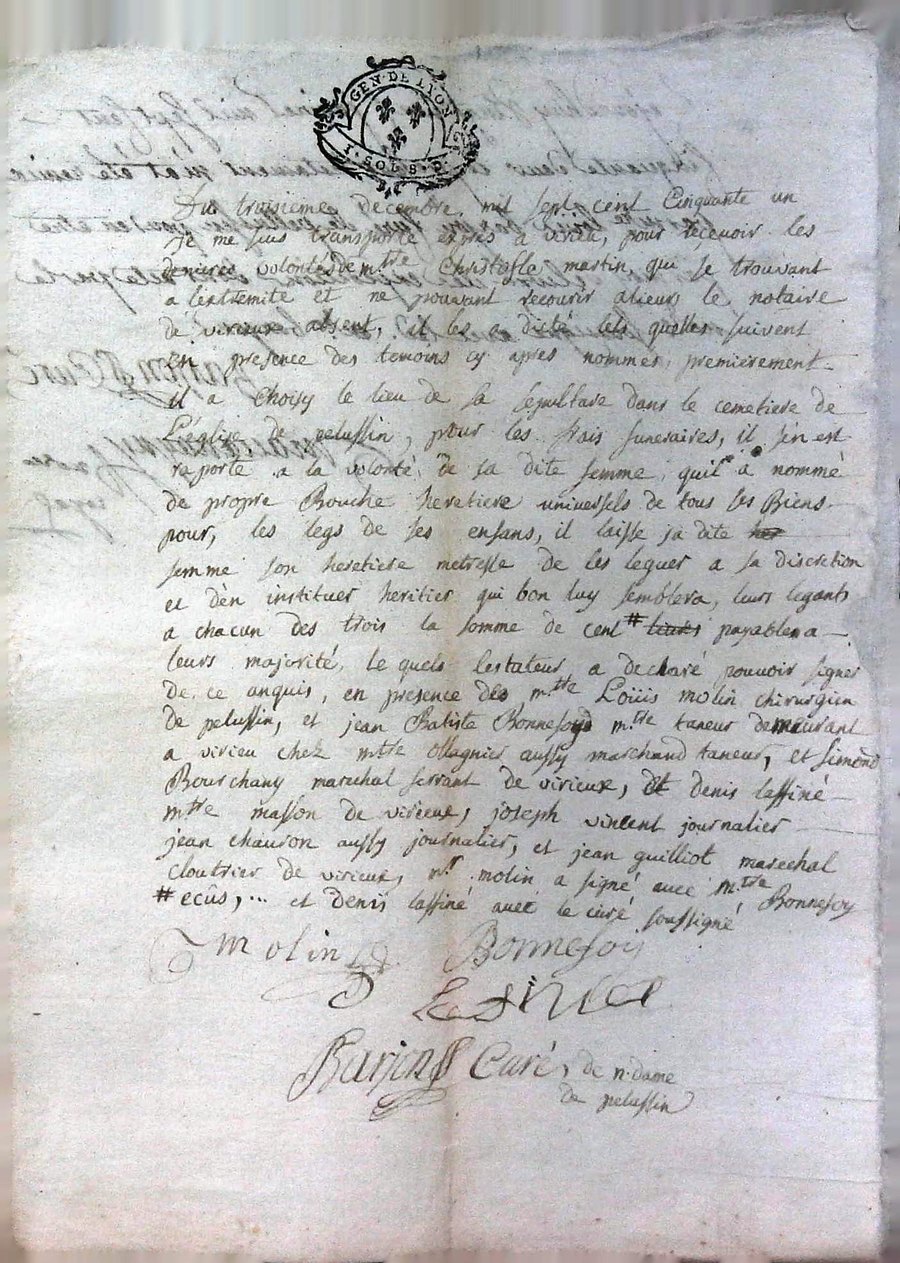 GEN · DE LYON
1 · SOL 8 · D
Du troisieme Decembre mil sept cent Cinquante un
Je me suis transporté exprés a virieu, pour recevoir les
dernieres volontés de mtre Christofle martin, qui se trouvant
a lextremité et ne pouvant recourir alieurs le notaire
de virieux absent, il les a dicté tels quelles suivent
En presence des temoins cy apres nommés, premierement
il a Choisy le lieu de sa sepulture dans le cemetiere de
L'église de pelussin, pour les frais funeraires, il s'en est
raporté a la volonté de sa dite femme quil a nommé
de propre Bouche heretiere universels de tous ses Biens
pour, les legs de ses enfans, il laisse sa dite her
femme son heretiere metresse de les leguer a sa discretion
et d'en instituer heritier qui bon luy semblera, leurs legants
a chacun des trois la somme de cent # livres payables a
leurs majorité, le quels testateur a declaré pouvoir signer
de, ce anquis, en presence des mtre Loüis molin chirurgien
de pelussin, et jean Batiste Bonnefoy mtre taneur demeurant
a virieu chez mtre ollagnier aussy marchand taneur, et Simond
Bourchany marechal ferrant de virieux, et denis lassiné
mtre masson de virieue, joseph vincent journalier
jean chauron aussy journalier, et jean guilliot marechal
cloutrier de virieux, mr molin a signé avec mtre Bonnefoy
# ecûs, ... et Denis lassiné avec le curé soussigné
molin Bonnefoy
Barjon Curé, de n. dame
de pelussin